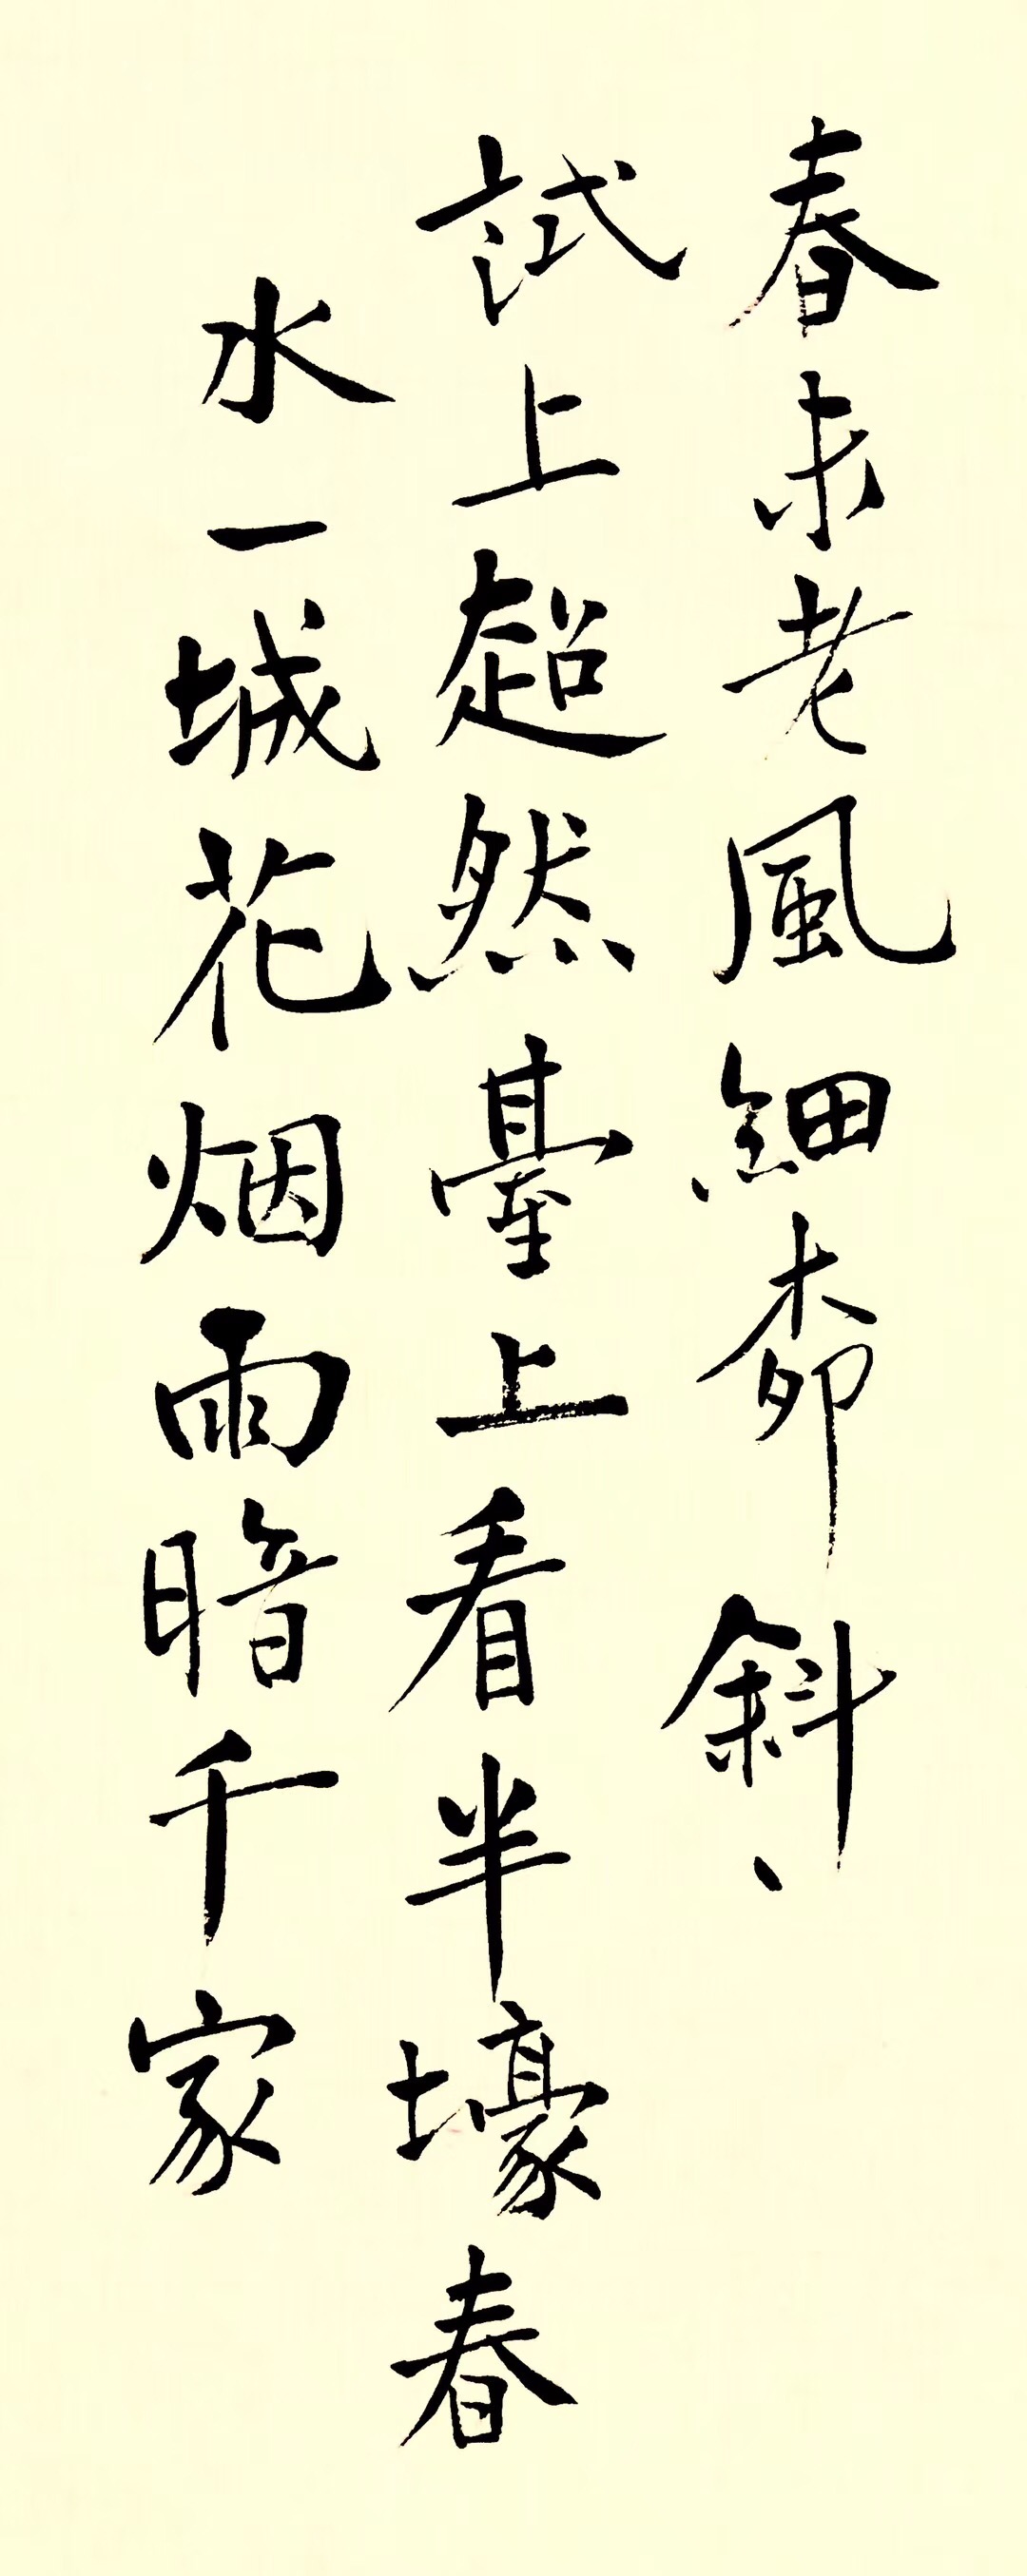 春未老風細桺斜、
試上超然臺上看半壕春
水一城花烟雨暗千家